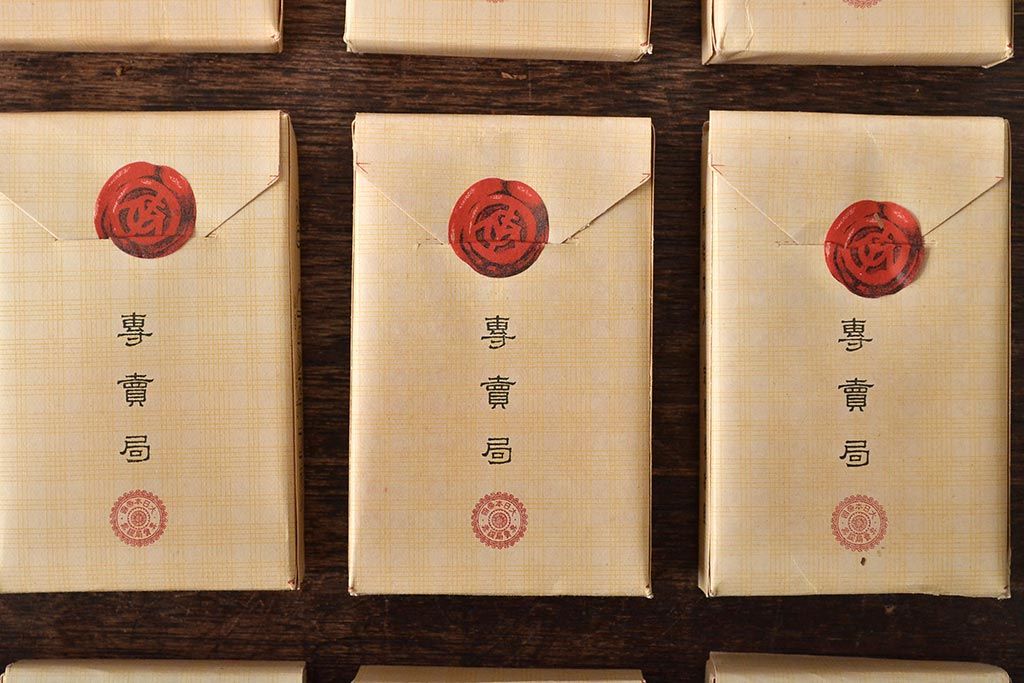 專賣局
專賣局
專賣局